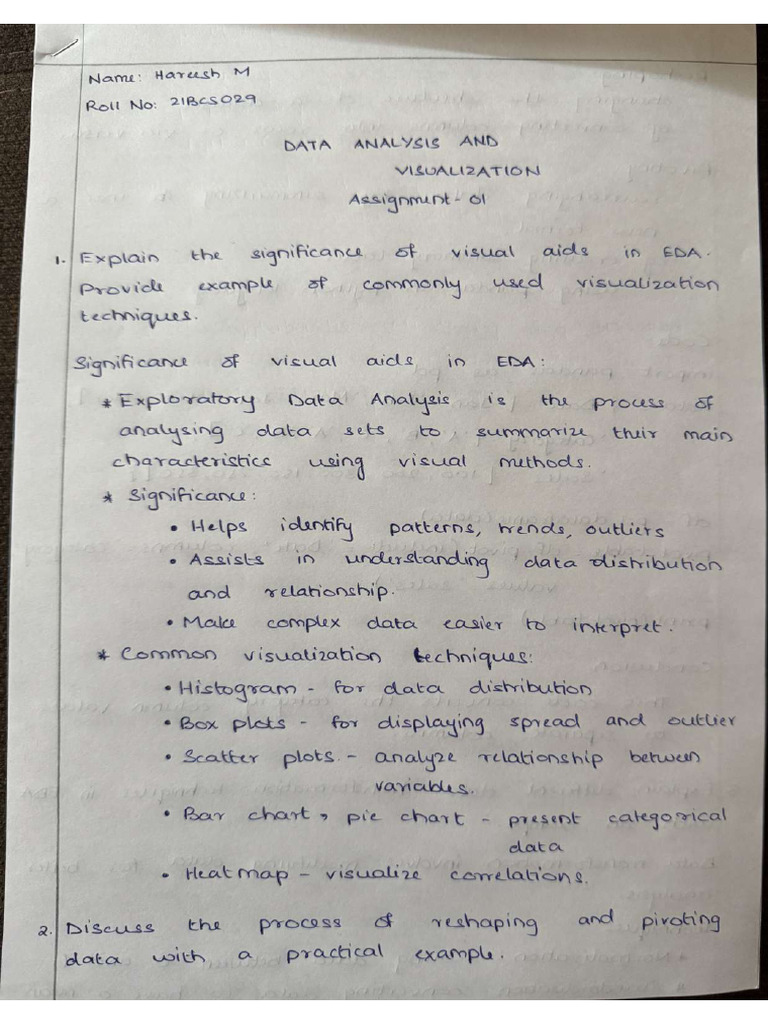 Name: Hareesh M
Roll No: 21BCS029
DATA ANALYSIS AND
VISUALIZATION
Assignment - 01
1. Explain the significance of visual aids in EDA.
Provide example of commonly used visualization
techniques.
Significance of visual aids in EDA:
* Exploratory Data Analysis is the process of
analysing data sets to summarize their main
characteristics using visual methods.
* Significance:
• Helps identify patterns, trends, outliers
• Assists in understanding data distribution
and relationship.
• Make complex data easier to interpret.
* Common visualization techniques:
• Histogram - for data distribution
• Box plots - for displaying spread and outlier
• Scatter plots - analyze relationship between
variables.
• Bar chart, pie chart - present categorical
data
• Heatmap - visualize correlations.
2. Discuss the process of reshaping and pivoting
data with a practical example.